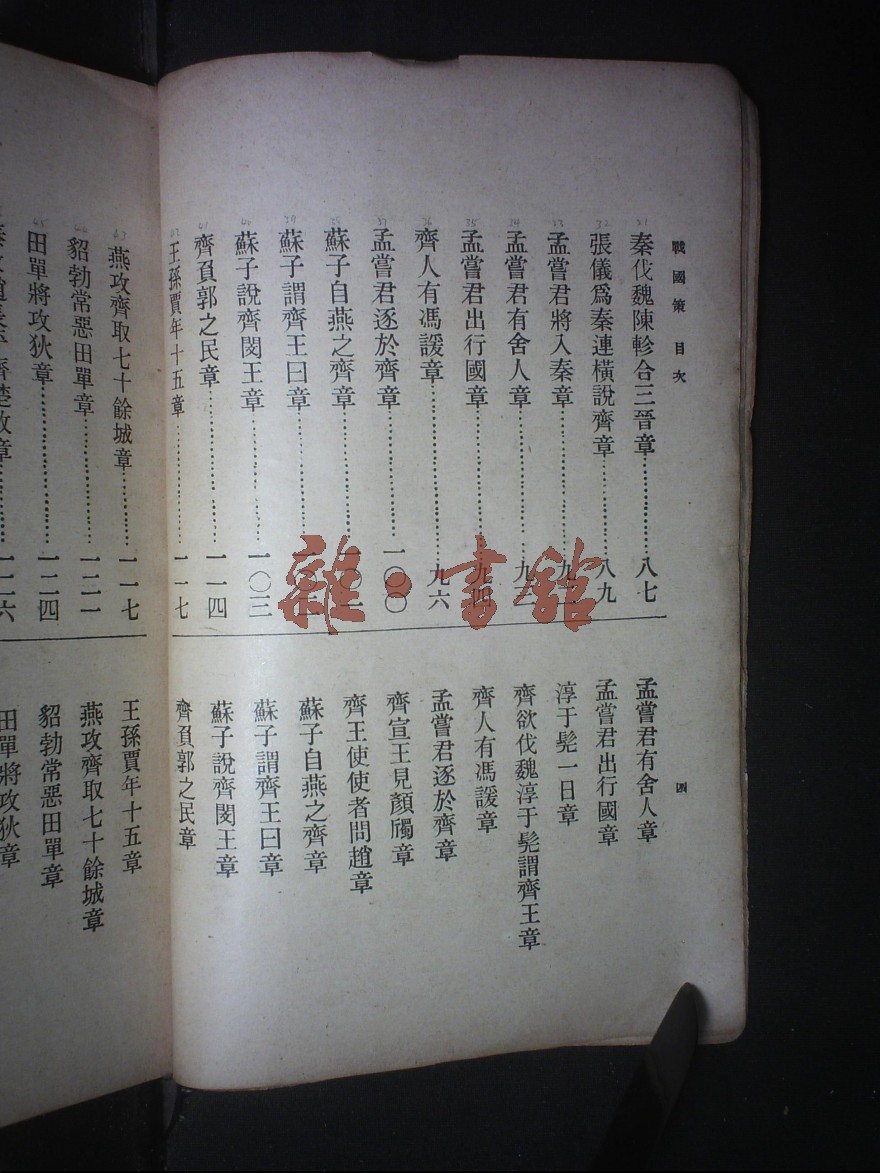 戰國策 目次
四
秦伐魏陳軫合三晉章…………八七
張儀爲秦連橫說齊章…………八九
孟嘗君將入秦章…………九一
孟嘗君有舍人章…………九二
孟嘗君出行國章…………九四
齊人有馮諼章…………九六
孟嘗君逐於齊章…………一〇〇
蘇子自燕之齊章…………一〇
蘇子謂齊王曰章…………一〇二
蘇子說齊閔王章…………一〇三
齊負郭之民章…………一一四
王孫賈年十五章…………一一七
孟嘗君有舍人章
孟嘗君出行國章
淳于髡一日章
齊欲伐魏淳于髡謂齊王章
齊人有馮諼章
孟嘗君逐於齊章
齊宣王見顏斶章
齊王使使者問趙章
蘇子自燕之齊章
蘇子謂齊王曰章
蘇子說齊閔王章
齊負郭之民章
燕攻齊取七十餘城章…………一一七
貂勃常惡田單章…………一二一
田單將攻狄章…………一二四
一二六
王孫賈年十五章
燕攻齊取七十餘城章
貂勃常惡田單章
田單將攻狄章
雜·書館